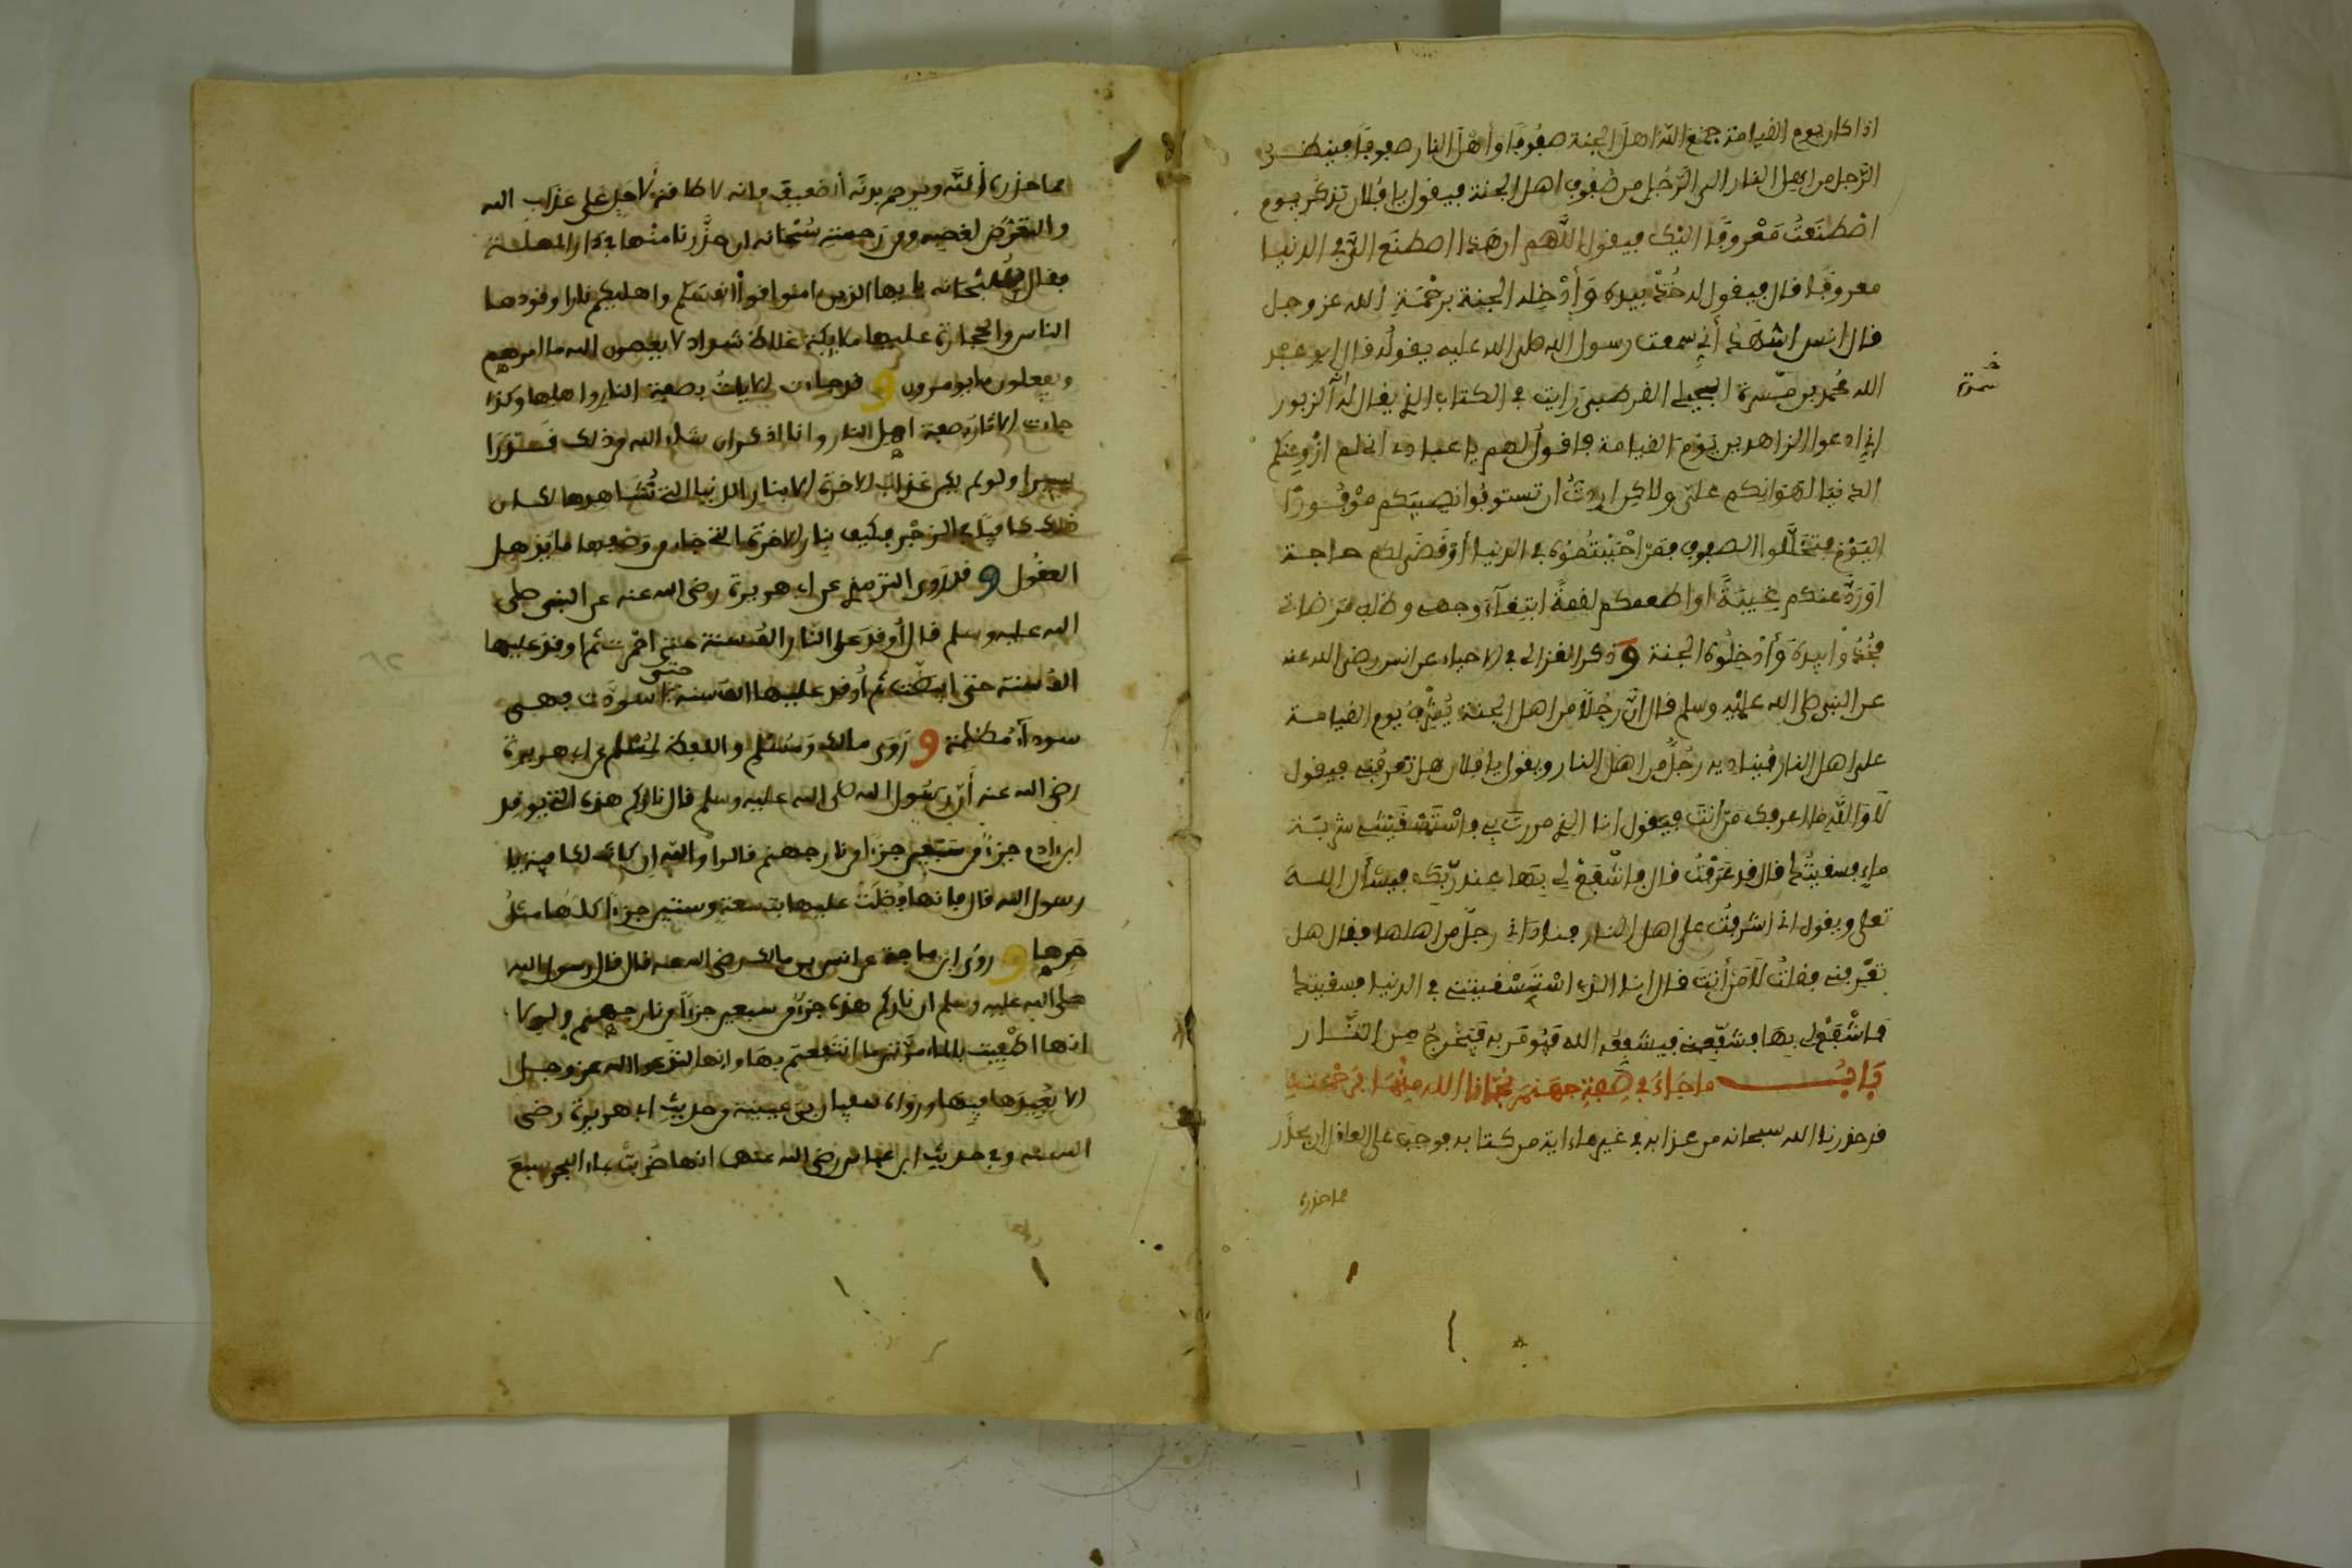 اذا كان يوم القيامة جمع الله اهل الجنة صفُوفًا وأهْلَ النار صفوفًا فينظـر
الرّجل من اهل النار الى الرّجُل من صُفوف اهل الجنة فيقول يا فُلان تذكُر يوم
اصْطنَعتُ مَعْروفًا اليك فيقول اللَّهم ان هَذا اصطنَع التي في الدنيا
معروفًا قال فيقول له خُذْ بيده وَأَدْخِله الجنة برَحْمَةِ الله عز وجل
قال انس اشهَدُ أني سمعت رسول الله صلى الله عليه يقولُه قال ابو عبد
الله محُمد بن مَيْسرة الجبلي القرطبي رَايت في الكتاب الذي يقال لهُ الزبور
اني ادعوا الزاهدين يَوْمَ القيامة فاقولُ لهم يا عبادي اني لم ازْوِ عنكم
الدنيا لهَوانِكم علَيّ ولاكن اردتُ ان تستوفُوا نصِيبَكم موْفُورًا
اليَوْم فتخَلَّلوا الصفوف فمَن احْبَبْتُمُوه في الدنيا أوْ قَضَى لكم حاجة
اوْ رَدَّ عنكم غِيبَةً او اطعمكم لقمةً ابتغآءَ وجهي وطلب مَرضَاتي
فخُذُوا بيده وَأَدْخِلُوه الجنة وَذكر الغزالي في الاحياء عن انس رضي الله عنه
عن النبي صلى الله عليْه وسلم قال انَّ رَجُلًا من اهل الجنة يُشْرِف يوم القيامة
على اهل النار فيُناديه رَجُلٌ من اهل النار ويقول يا فلان هل تعرفُني فيقول
لَا وَاللَّهِ ما اعرفك مَن أنتَ فيَقول انا الذي مررتَ بي فاسْتَسْقَيْتَني شربَة
ماءٍ فسقيتُك قال قد عَرفْتُ قال فاشْفَعْ لي بهَا عند ربّك فيسْأل اللـه
تعلى ويقول اني اشرفْتُ على اهل النار فنادَاني رجلٌ من اهلها فقال هل
تعْرفني فقلتُ لَا مَن أَنتَ قال انا الذي اسْتَسْقيتني في الدنيا فسقيتك
فاشْفَعْ لي بِهَا فشَفِّعني فيشفِّعه الله فيُومَر به فيَخْرجُ من النَّـار
بَابُ ما جَاءَ في صِفةِ جهنمَ نجَّانا الله مِنْهَا برَحمَتهِ
قد حذرنا الله سبحانه من عذابه في غير ما ءاية من كتابه فوجبَ على العاقل ان يحذَر
مما حذره
ثمرة
مما حذره اللَّه ويرحم بدنَه الضعيف فانه لا طاقة لاحدٍ على عذاب الله
والتعَرُّض لغضبه ومن رَحمته سُبْحانه ان حذَّرنا منْها في دار المهلـة
فقال سُبْحانه يا يها الذين امنوا قوا انفسكم واهليكم نارا وقودها
الناس والحجارة عليها ملايكة غلاظ شداد لا يعصون الله ما امرهم
ويفعلون ما يومرون وقد جاءت الايات بصفة النار واهلها وكذا
جاءت الاثار بصفة اهل النار وانا اذكر ان شاء الله من ذلك قَـدْرًا
يسيرا ولو لم يكن عذاب الاخرة الا بنار الدنيا التي نُشاهدها لكـان
ذلك كافيًا في الزجْر فكيف بنار الاخرة التي جاء من وصْفها ما يذهل
العقُول وقد رَوى الترمذي عن ابي هريرة رضي الله عنه عن النبي صلى
الله عليه وسلم قال اُوقد على النار الف سنة حتى احْمرت ثم اوقد عليها
الف سنة حتى ابيضّت ثم اُوقد عليها الف سنة حتى اسودَّت فهـي
سودآءُ مظلمة ورَوى مالك ومُسْلم واللفظ لمُسْلم عن ابي هريرة
رضي الله عنه أن رسُول الله صلى الله عليه وسلم قال ناركم هذه التي يوقد
ابن ادم جزءٌ من سبْعين جزءًا من نار جهنم قالوا واللهِ ان كانت لكافية يا
رسول الله قال فإنها فُضلَت عليها بتسعة وستين جزءًا كلها مثلُ
حَرها وروَى ابن ماجة عن انس بن مالك رضي الله عنه قال قال رسول الله
صلى الله عليه وسلم ان ناركم هذه جزءٌ من سبعين جزءًا من نار جهنم ولولا
انها اطْفِيت بالماء مرّتين ما انتفعتم بها وانها لتدعوا الله عز وجـل
الا يُعِيدَها فيها ورَواه سفيان بن عيينة من حديث ابي هريرة رضي
الله عنه وفي حديث ابن عباس رضي الله عنهما انها ضُربت بماء البحر سبع